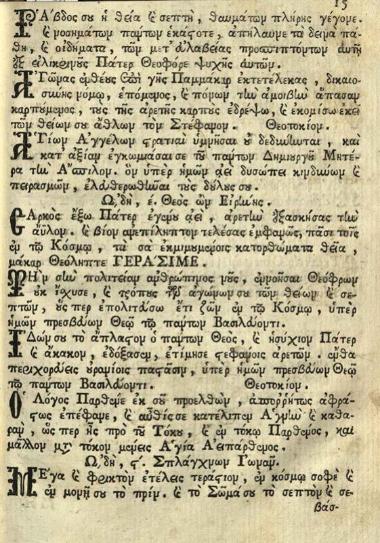 15
Ῥάβδος σου ἡ θεία ϗ σεπτὴ, θαυμάτων πλήρης γέγονε,
ϗ νοσημάτων παντων ἑκάστοτε, ἀπήλαυνε τὰ δεινὰ πά-
θη, ϗ οἰδήματα, τῶν μετ᾽ εὐλαβείας προσπιπτόντων αὐτῇ
ἐξ εἰλικρινῆς Πάτερ Θεοφόρε ψυχῆς αὐτῶν.
Ἀγῶνας ἐνθέους ἐπὶ γῆς Παμμάκαρ ἐκτετέλεκας, δικαιο-
σύνης νόμῳ, ἑπόμενος, ϗ πόνων τὴν ἀμοιβὴν ἅπασαν
καρπούμενος, τοὺς τῆς ἀρετῆς καρποὺς ἔδρεψω, ϗ ἐκομίσω ἐκεῖ
τῶν θείων σου ἄθλων τὸν Στέφανον. Θεοτοκίον.
Ἁγίων Ἀγγέλων στρατιαὶ ὑμνῆσαι οὐ δεδύνωνται, καὶ
κατ᾽ ἀξίαν ἐγκωμιάσαι σε τοῦ παντων Δημιουργοῦ Μητέ-
ρα τὴν Ἄσπιλον. ὃν ὑπὲρ ἡμῶν ἀεὶ δυσώπει κινδύνων ϗ
πειρασμῶν, ἐλευθερωθῆναι τοὺς δούλους σου.
ᾨδὴ, ε. Θεὸς ὢν Εἰρήνης.
Σαρκὸς ἔξω Πάτερ ἐγένου ἀεὶ, ἀρετὴν ἐξασκήσας τὴν
ἄϋλον. ϗ βίον ἀνεπίληπτον τελέσας ἐμφανῶς, πᾶσι τοῖς
ἐν τῷ Κόσμῳ, τὰ σὰ ἐκμιμουμένοις κατορθώματα θεῖα,
μάκαρ Θεόληπτε ΓΕΡΑΣΙΜΕ.
Τὴν σὴν πολιτείαν ἀνθρώπινος νοῦς, ἐννοῆσαι Θεόφρων
οὐκ ἴσχυσε, ϗ τρόπους τῶν ἀγώνων σου τῶν θείων ϗ σε-
πτῶν, οὓς περ ἐπολιτεύσω ἔτι ζῶν ἐν τῷ Κόσμῳ, ὑπὲρ
ἡμῶν πρεσβεύων Θεῷ τῷ παντων Βασιλεύοντι.
Ἰδών σου τὸ ἄπλαστον ὁ παντων Θεὸς, ϗ ἡσύχιον Πάτερ
ϗ ἄκακον, ἐδόξασεν, ἐτίμησε στεφάνοις ἀρετῶν. ἔνθα
περιχορεύεις οὐρανίοις παστᾶσιν, ὑπὲρ ἡμῶν πρεσβεύων Θεῷ
τῷ παντων Βασιλεύοντι. Θεοτοκίον.
Ὁ Λόγος Παρθένε ἐκ σοῦ προελθὼν, ἀποῤῥήτως ἀφρά-
στως ἐπέφανε, ϗ αὖθίς σε κατέλιπεν Ἁγνὴν ϗ καθα-
ρὰν, ὥς περ ἦς πρὸ τοῦ Τόκου, ϗ ἐν τόκῳ Παρθένος, καὶ
μᾶλλον μετὰ τόκον μένεις Ἁγία Ἀειπάρθενος.
ᾨδὴ, ϛ. Σπλάγχνων Ἰωνᾶν.
Μέγα ϗ φρικτὸν ἐτέλεις τεράστιον, ἐν κόσμῳ σοφὲ ϗ
ἐν μονῇ σου τὸ πρίν. ϗ τὸ Σῶμά σου τὸ σεπτὸν ϗ σε-
βάσ-